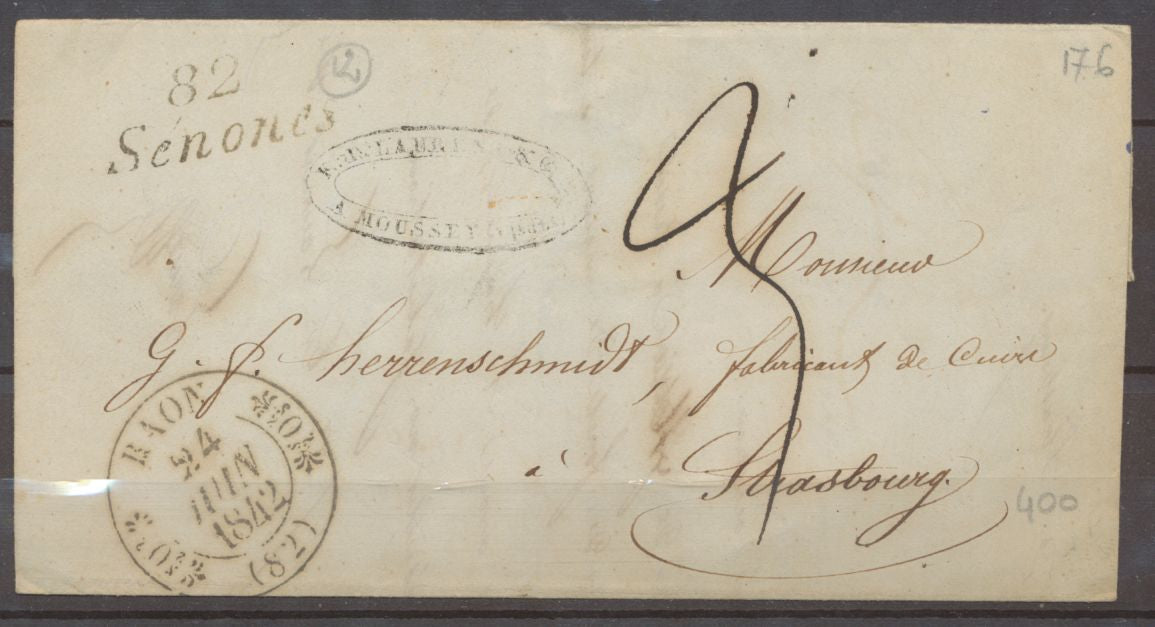 82
Sénones
12
176
LAURENT & C
A MOUSSEY
3
Monsieur
G. f. herrenschmidt, fabricant de Cuirs
à Strasbourg.
400
RAON
24
JUIN
1842
(82)